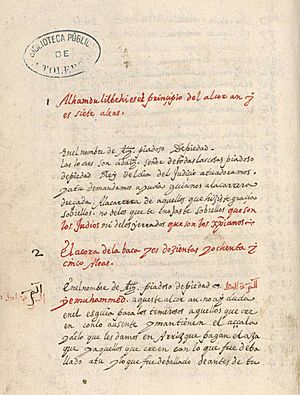 BIBLIOTECA PÚBLIC
DE
TOLEDO
1 Alhamdu lillehi es el principio del alcoran y
es siete aleas.
En el nombre de piadoso De piedad.
las loores son ad señor de todas las cosas piadoso
de piedad Rey del dia del judicio a tu adoramos
y a tu demandamos ayuda guianos a la carrera
dreçada. A la carrera de aquellos que hiziste gracias
sobrellos. no de los que te enojaste sobrellos que son
los Judios ni de los yerrados que son los
2 El açora de la baca y es dozientas y ochenta y
cinco Aleas.
En el nombre de piadoso de piedad
yo muhammed. aqueste alcoran. no ay duda
en el es guia para los temerosos aquellos que cre
en con lo ausente y mantienen el açala
y de lo que les damos en Arrizque pagan el aza
que y aquellos que creen con lo que fue deba
llado a tu y lo que fue deballado de antes de tu